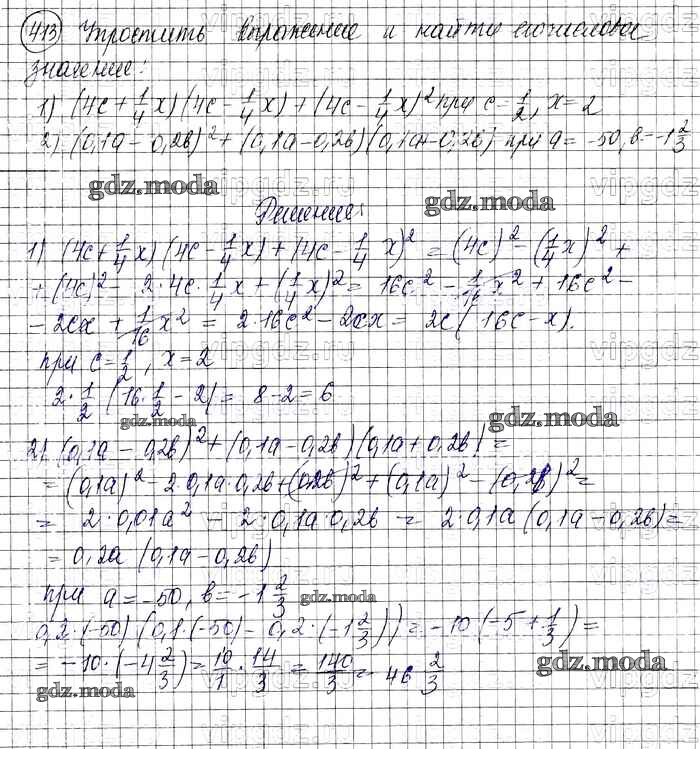 413 Упростить выражение и найти его числовое
значение:
1) (4c + 1/4 x) (4c - 1/4 x) + (4c - 1/4 x)² при c = 1/2, x = 2
2) (0,1a - 0,2в)² + (0,1a - 0,2в) (0,1a + 0,2в) при a = -50, в = -1 2/3
gdz.moda gdz.moda
Решение:
1) (4c + 1/4 x) (4c - 1/4 x) + (4c - 1/4 x)² = (4c)² - (1/4 x)² +
+ (4c)² - 2·4c·1/4 x + (1/4 x)² = 16c² - 1/16 x² + 16c² -
- 2cx + 1/16 x² = 2·16c² - 2cx = 2c (16c - x).
при c = 1/2, x = 2
2·1/2 (16·1/2 - 2) = 8 - 2 = 6
gdz.moda gdz.moda
2) (0,1a - 0,2в)² + (0,1a - 0,2в) (0,1a + 0,2в) =
= (0,1a)² - 2·0,1a·0,2в + (0,2в)² + (0,1a)² - (0,2в)² =
= 2·0,01a² - 2·0,1a·0,2в = 2·0,1a (0,1a - 0,2в) =
= 0,2a (0,1a - 0,2в)
при a = -50, в = -1 2/3 gdz.moda
0,2·(-50) (0,1·(-50) - 0,2·(-1 2/3)) = -10 (-5 + 1/3) =
= -10·(-4 2/3) = 10/1 · 14/3 = 140/3 = 46 2/3
gdz.moda gdz.moda